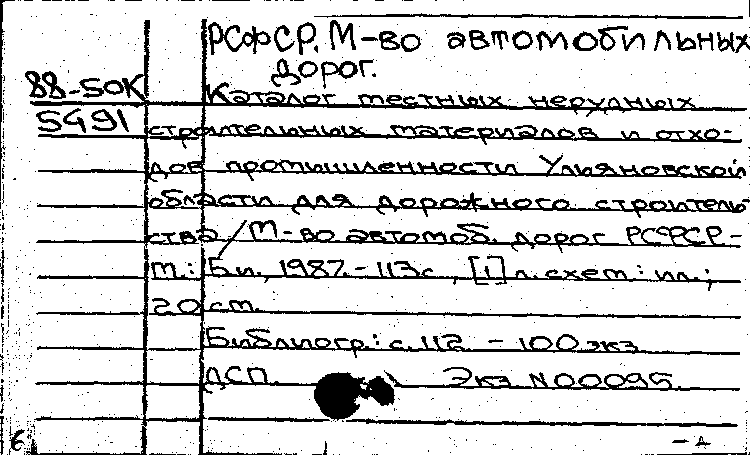 РСФСР. М-во автомобильных
дорог.
88-50К
Каталог местных нерудных
5491
строительных материалов и отхо-
дов промышленности Ульяновской
области для дорожного строитель-
ства / М-во автомоб. дорог РСФСР.-
М.: Б.и., 1987.-113с., [1] л. схем.: ил.;
20 см.
Библиогр.: с. 112. - 100 экз.
ДСП. Экз N00095.